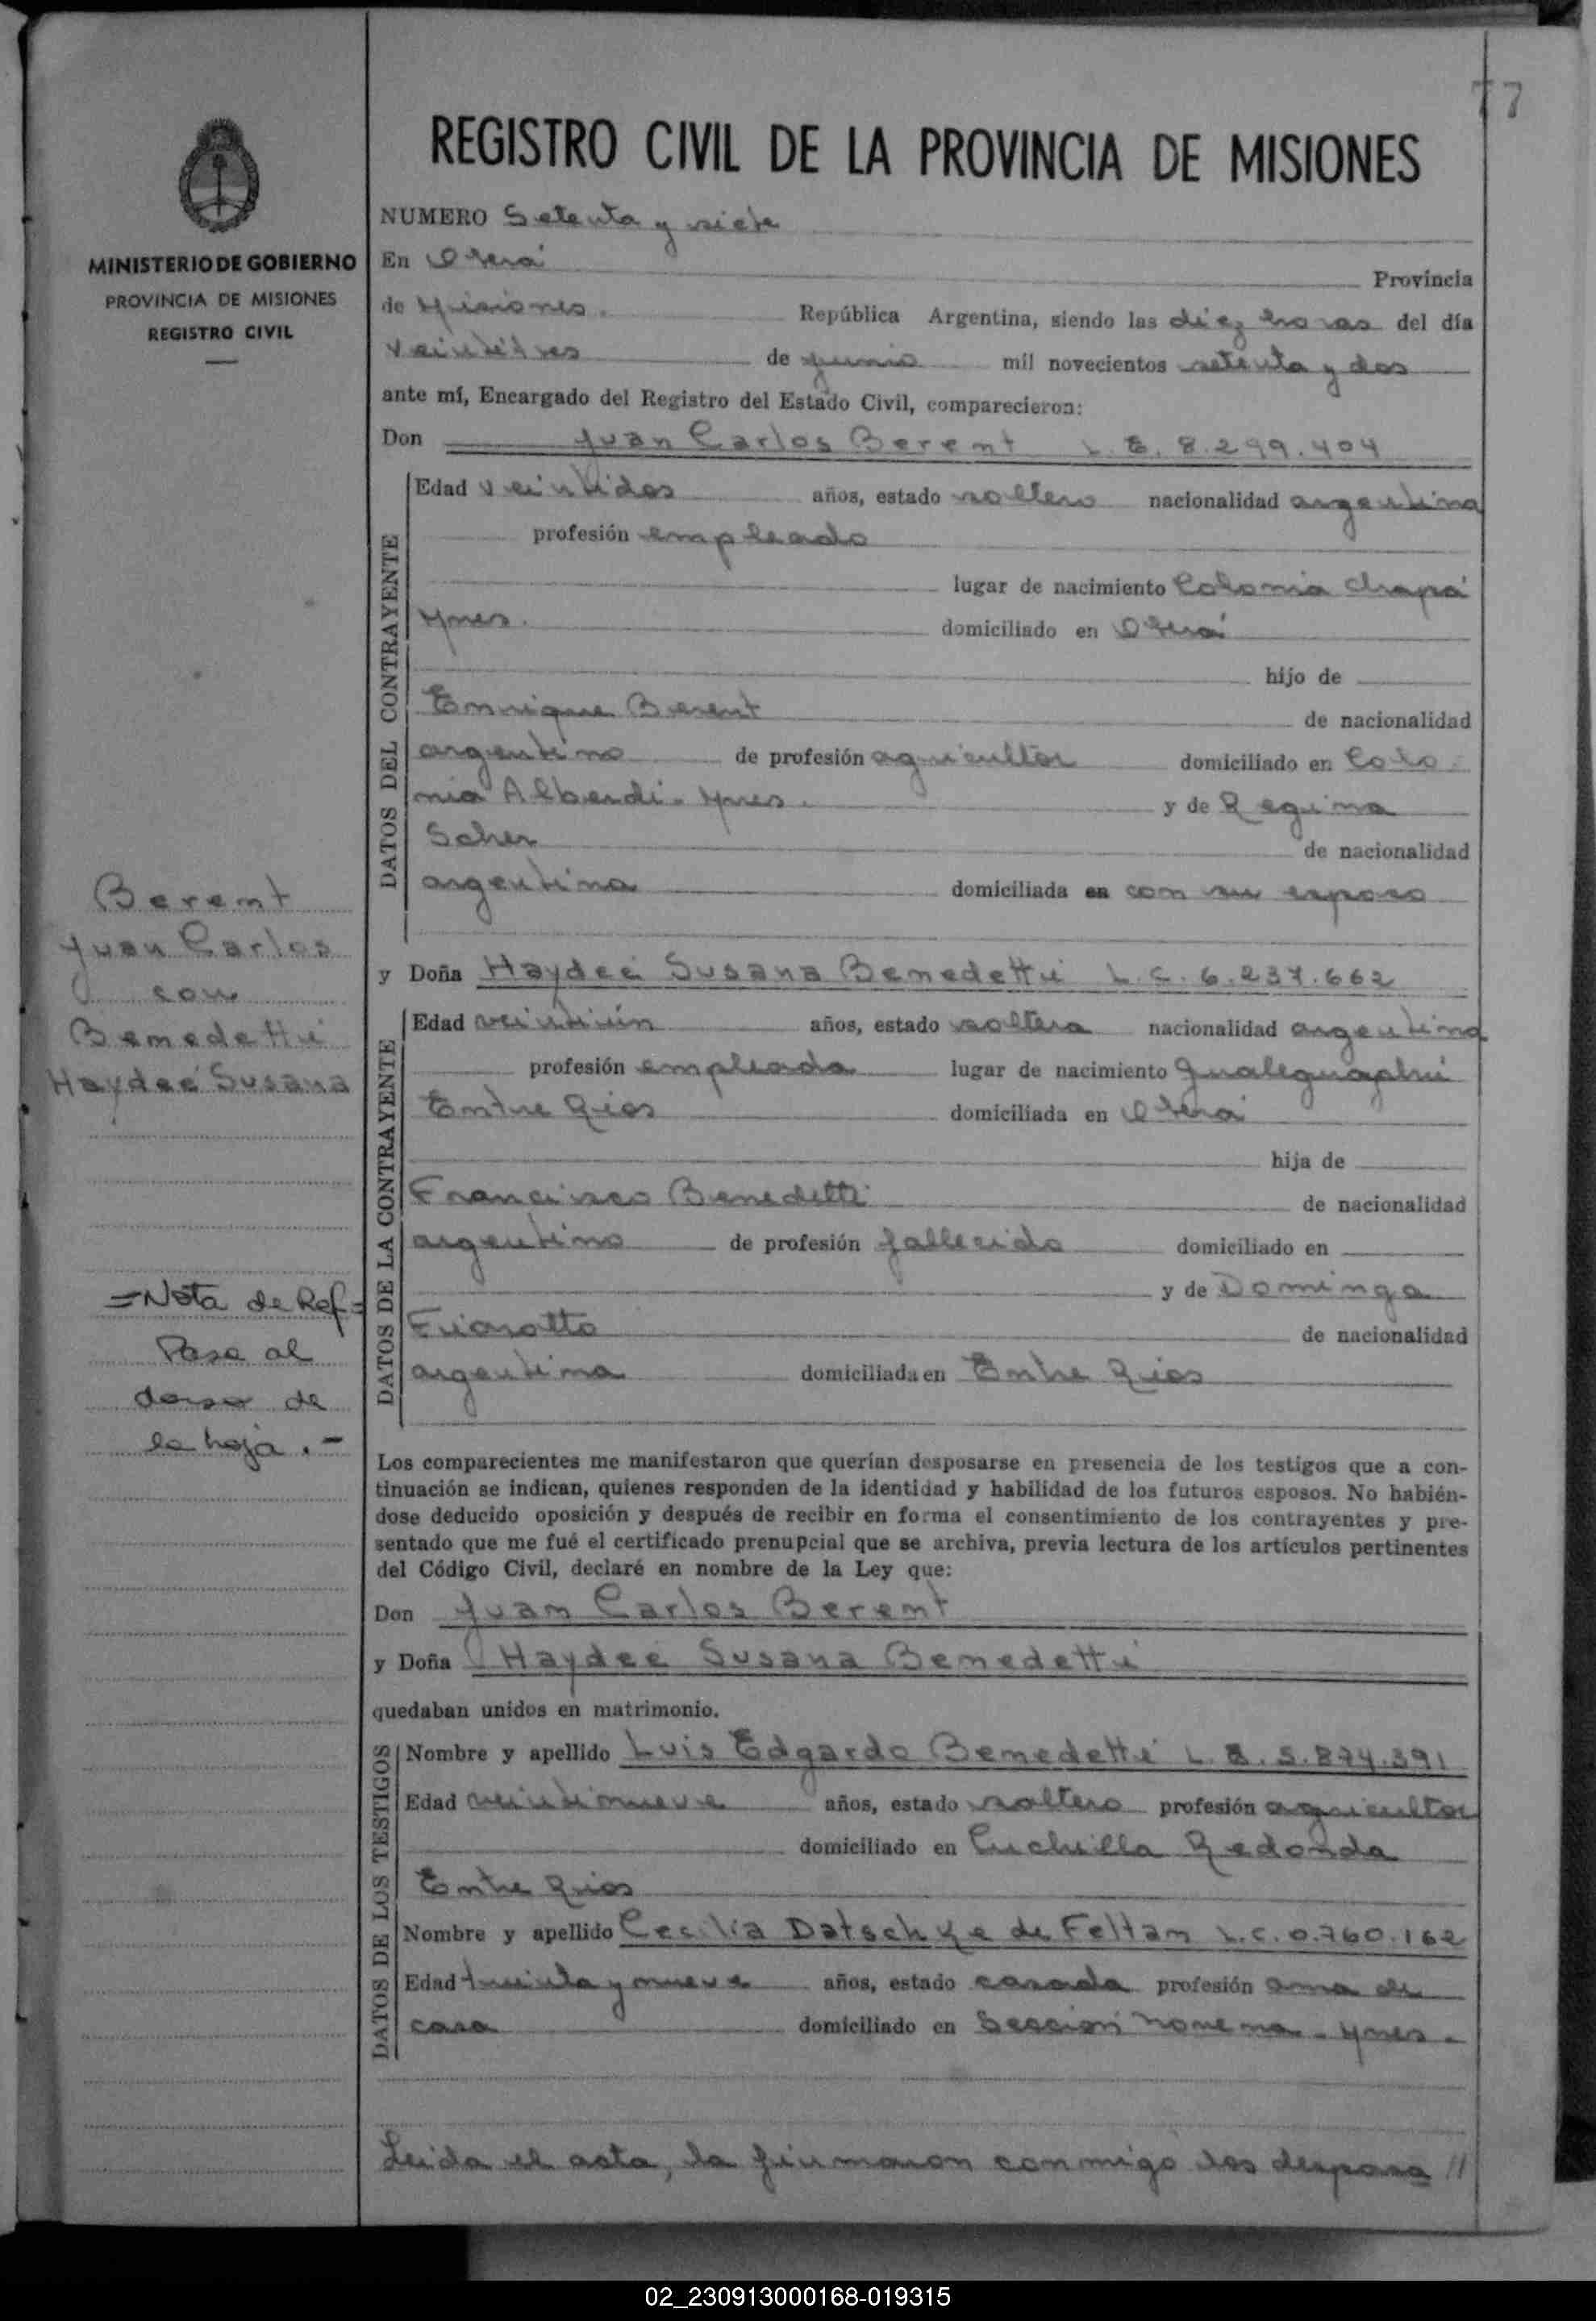 77
REGISTRO CIVIL DE LA PROVINCIA DE MISIONES
MINISTERIO DE GOBIERNO
PROVINCIA DE MISIONES
REGISTRO CIVIL
NUMERO Setenta y siete
En Oberá Provincia
de Misiones. República Argentina, siendo las diez horas del día
veintitres de junio mil novecientos setenta y dos
ante mí, Encargado del Registro del Estado Civil, comparecieron:
Don Juan Carlos Berent L.E. 8.299.404
DATOS DEL CONTRAYENTE
Edad veintidos años, estado soltero nacionalidad argentina
profesión empleado
lugar de nacimiento Colonia Chapá
Mnes. domiciliado en Oberá
hijo de
Enrique Berent de nacionalidad
argentino de profesión agricultor domiciliado en Colo-
nia Alberdi - Mnes. y de Regina
Scher de nacionalidad
argentina domiciliada en con su esposo
Berent
Juan Carlos
con
Benedetti
Haydeé Susana
y Doña Haydeé Susana Benedetti L.C. 6.237.662
DATOS DE LA CONTRAYENTE
Edad veintiún años, estado soltera nacionalidad argentina
profesión empleada lugar de nacimiento Gualeguaychú
Entre Rios domiciliada en Oberá
hija de
Francisco Benedetti de nacionalidad
argentino de profesión fallecido domiciliado en
y de Dominga
de nacionalidad
argentina domiciliada en Entre Rios
=Nota de Ref=
Pasa al
dorso de
la hoja.-
Los comparecientes me manifestaron que querían desposarse en presencia de los testigos que a con-
tinuación se indican, quienes responden de la identidad y habilidad de los futuros esposos. No habién-
dose deducido oposición y después de recibir en forma el consentimiento de los contrayentes y pre-
sentado que me fué el certificado prenupcial que se archiva, previa lectura de los artículos pertinentes
del Código Civil, declaré en nombre de la Ley que:
Don Juan Carlos Berent
y Doña Haydeé Susana Benedetti
quedaban unidos en matrimonio.
DATOS DE LOS TESTIGOS
Nombre y apellido Luis Edgardo Benedetti L.E. 5.874.391
Edad veintinueve años, estado soltero profesión agricultor
domiciliado en Cuchilla Redonda
Entre Rios
Nombre y apellido Cecilia Datschke de Feltan L.C. 0.760.162
Edad treinta y nueve años, estado casada profesión ama de
casa domiciliado en Sección novena - Mnes.
Leida el acta, la firmaron conmigo los desposa //
02_230913000168-019315